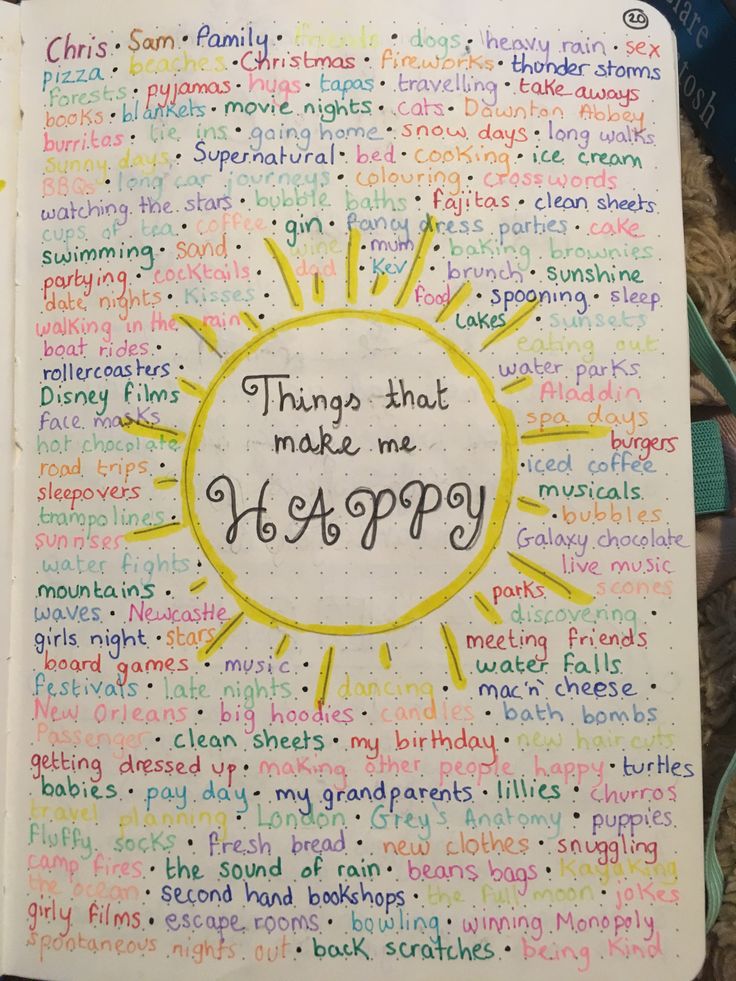 20
Chris • Sam • Family • friends • dogs • heavy rain • sex
pizza • beaches • Christmas • fireworks • thunder storms
forests • pyjamas • hugs • tapas • travelling • take aways
books • blankets • movie nights • cats • Downton Abbey
burritos • lie ins • going home • snow days • long walks
sunny days • Supernatural • bed • cooking • ice cream
BBQs • long car journeys • colouring • crosswords
watching the stars • bubble baths • fajitas • clean sheets
cups of tea • coffee • gin • fancy dress parties • cake
swimming • sand • wine • mum • baking brownies
partying • cocktails • dad • Kev • brunch • sunshine
date nights • Kisses • food • spooning • sleep
walking in the rain • Lakes • sunsets
boat rides • eating out
rollercoasters • water parks
Disney films Aladdin
face masks spa days
hot chocolate burgers
road trips • iced coffee
sleepovers musicals
trampolines • bubbles
sunrises Galaxy chocolate
water fights • live music
mountains • parks • scones
waves • Newcastle discovering •
girls night • stars meeting friends
board games • music • water falls
festivals • late nights • dancing • mac'n'cheese •
New Orleans • big hoodies • candles • bath bombs
Passenger • clean sheets • my birthday • new hair cuts
getting dressed up • making other people happy • turtles
babies • pay day • my grandparents • lillies • churros
travel planning • London • Grey's Anatomy • puppies
fluffy socks • fresh bread • new clothes • snuggling
camp fires • the sound of rain • beans bags • Kayaking
the ocean • second hand bookshops • the full moon • jokes
girly films • escape rooms • bowling • winning Monopoly
spontaneous nights out • back scratches • being kind
Things that
make me
HAPPY